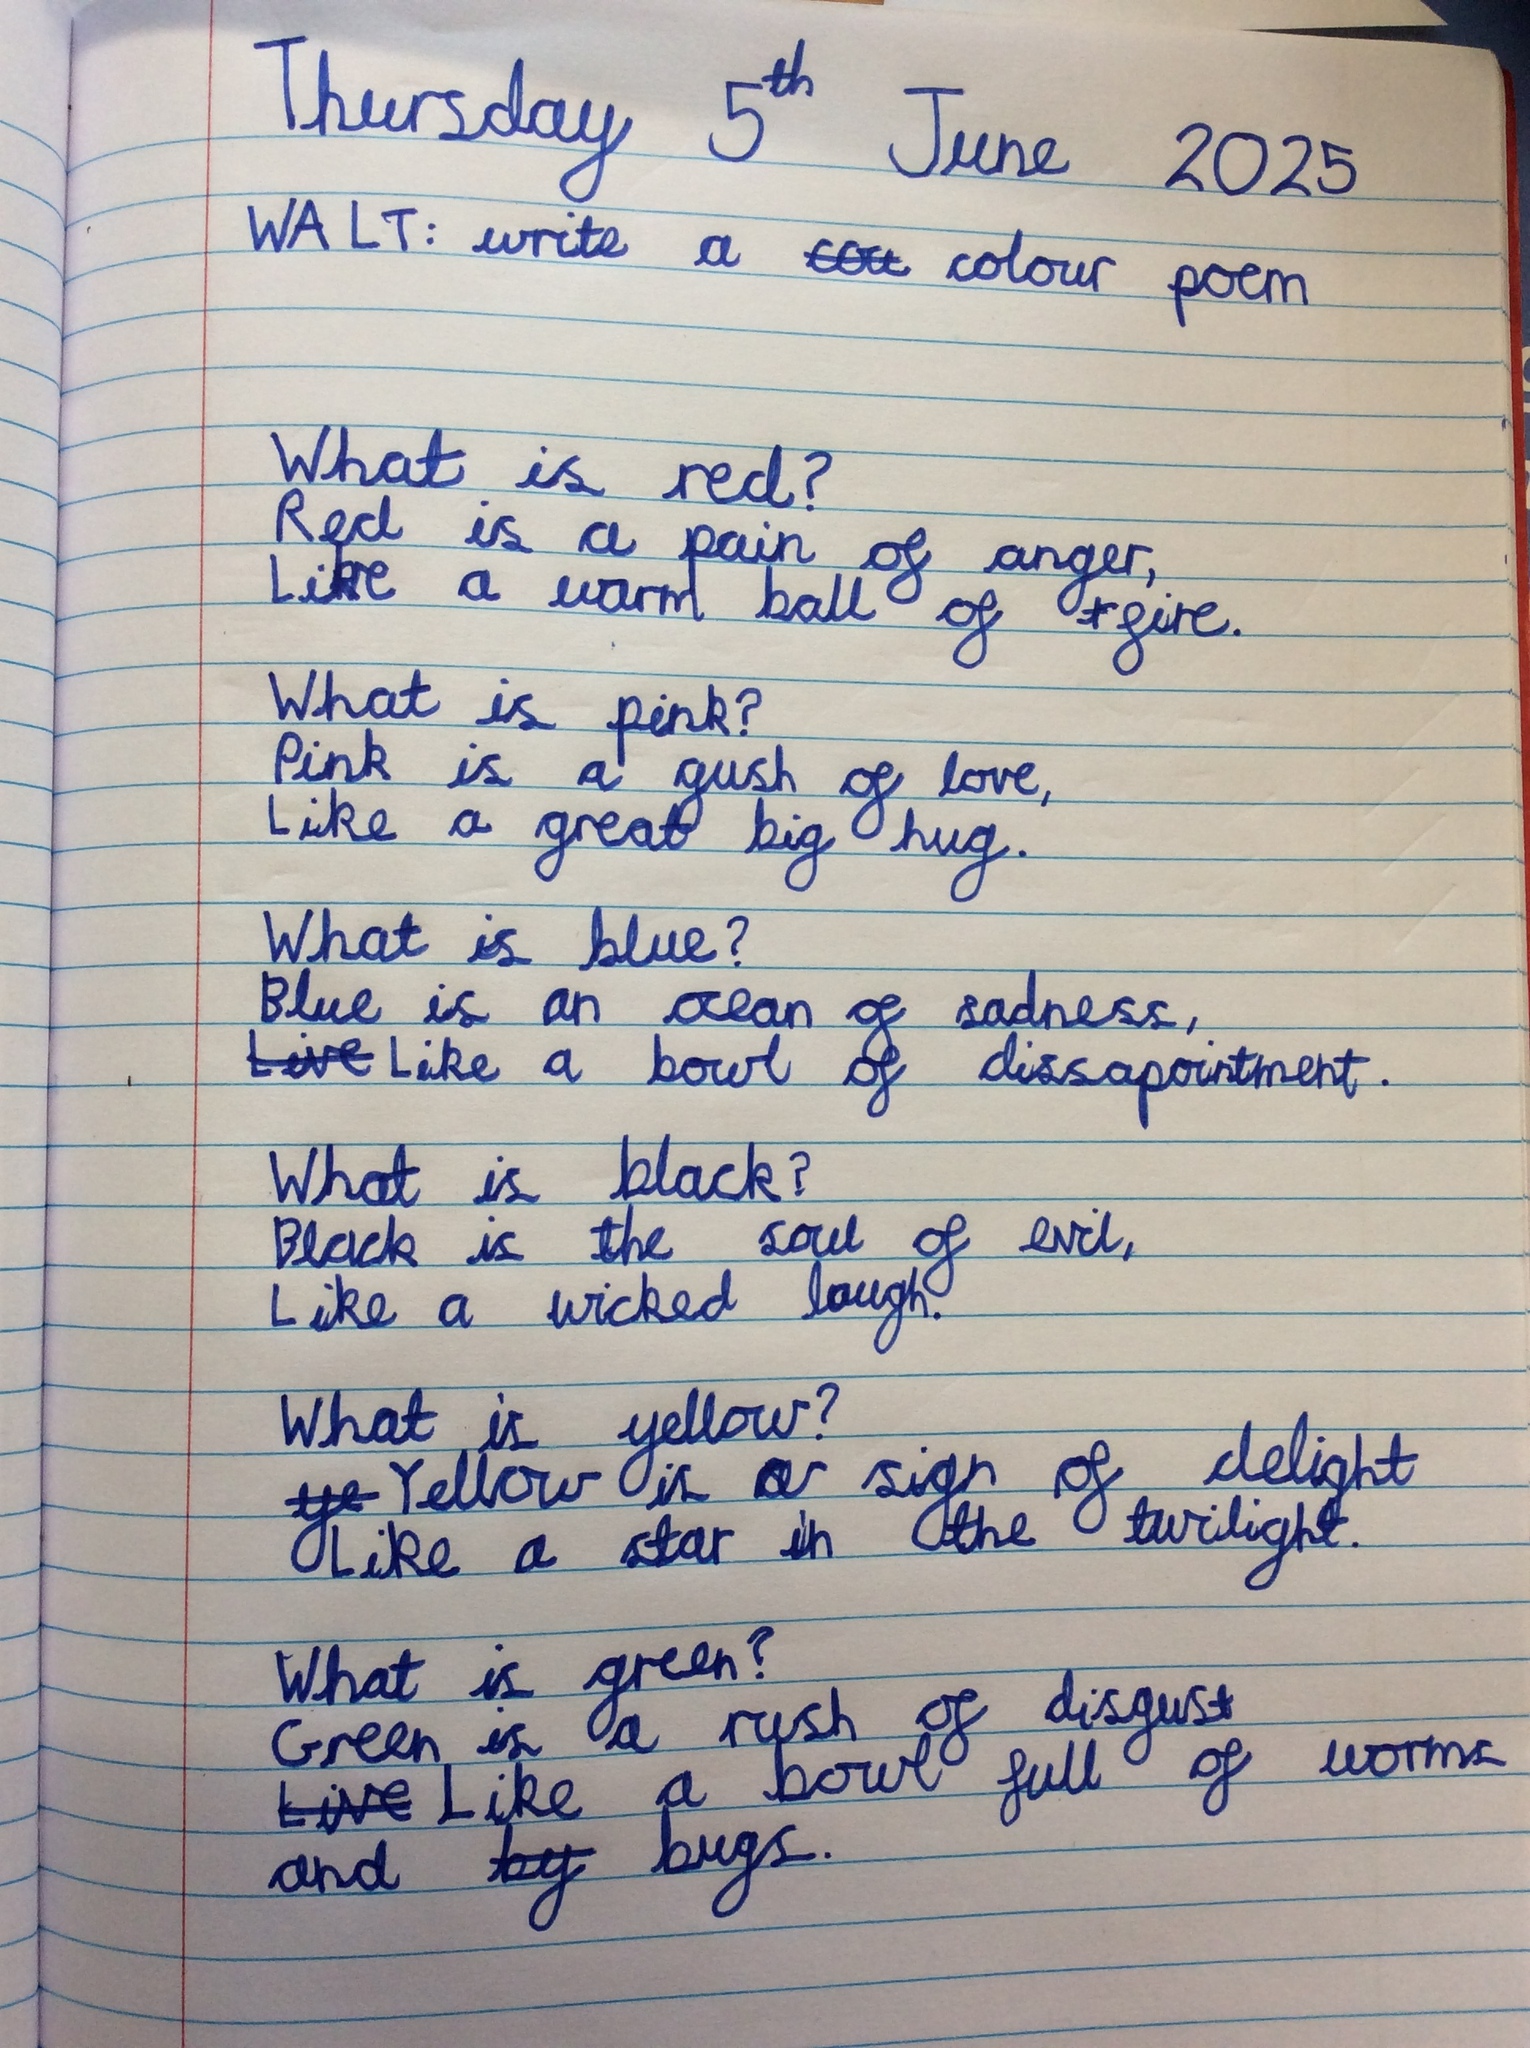 Thursday 5th June 2025
WALT: write a colour poem
What is red?
Red is a pain of anger,
Like a warm ball of fire.
What is pink?
Pink is a gush of love,
Like a great big hug.
What is blue?
Blue is an ocean of sadness,
Live Like a bowl of dissapointment.
What is black?
Black is the soul of evil,
Like a wicked laugh.
What is yellow?
ye Yellow is a sign of delight
Like a star in the twilight.
What is green?
Green is a rush of disgust
Live Like a bowl full of worms
and by bugs.